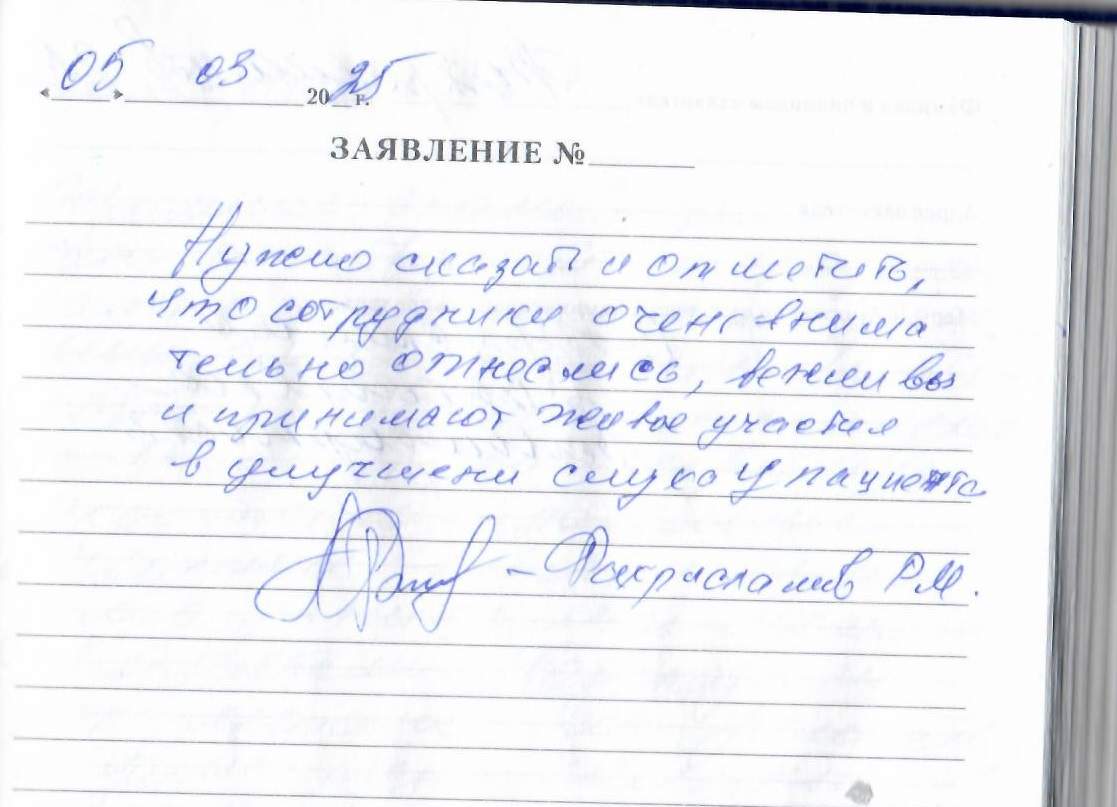 «05» 03 2025 г.
ЗАЯВЛЕНИЕ №
Нужно сказать и отметить,
что сотрудники очень внима
тельно отнеслись, вежливы
и принимают живое участия
в улучшени слуха у пациента
Р.М.